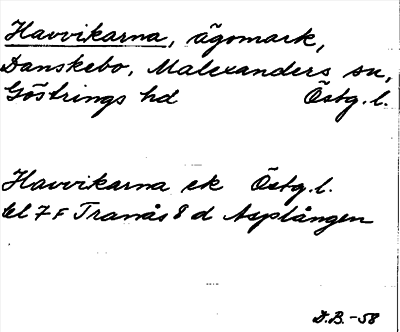 Havvikarna, ägomark,
Danskebo, Malexanders sn,
Göstrings hd Östg. l.
Havvikarna ek Östg. l.
bl 7 F Tranås 8 d Asplången
D.B. -58